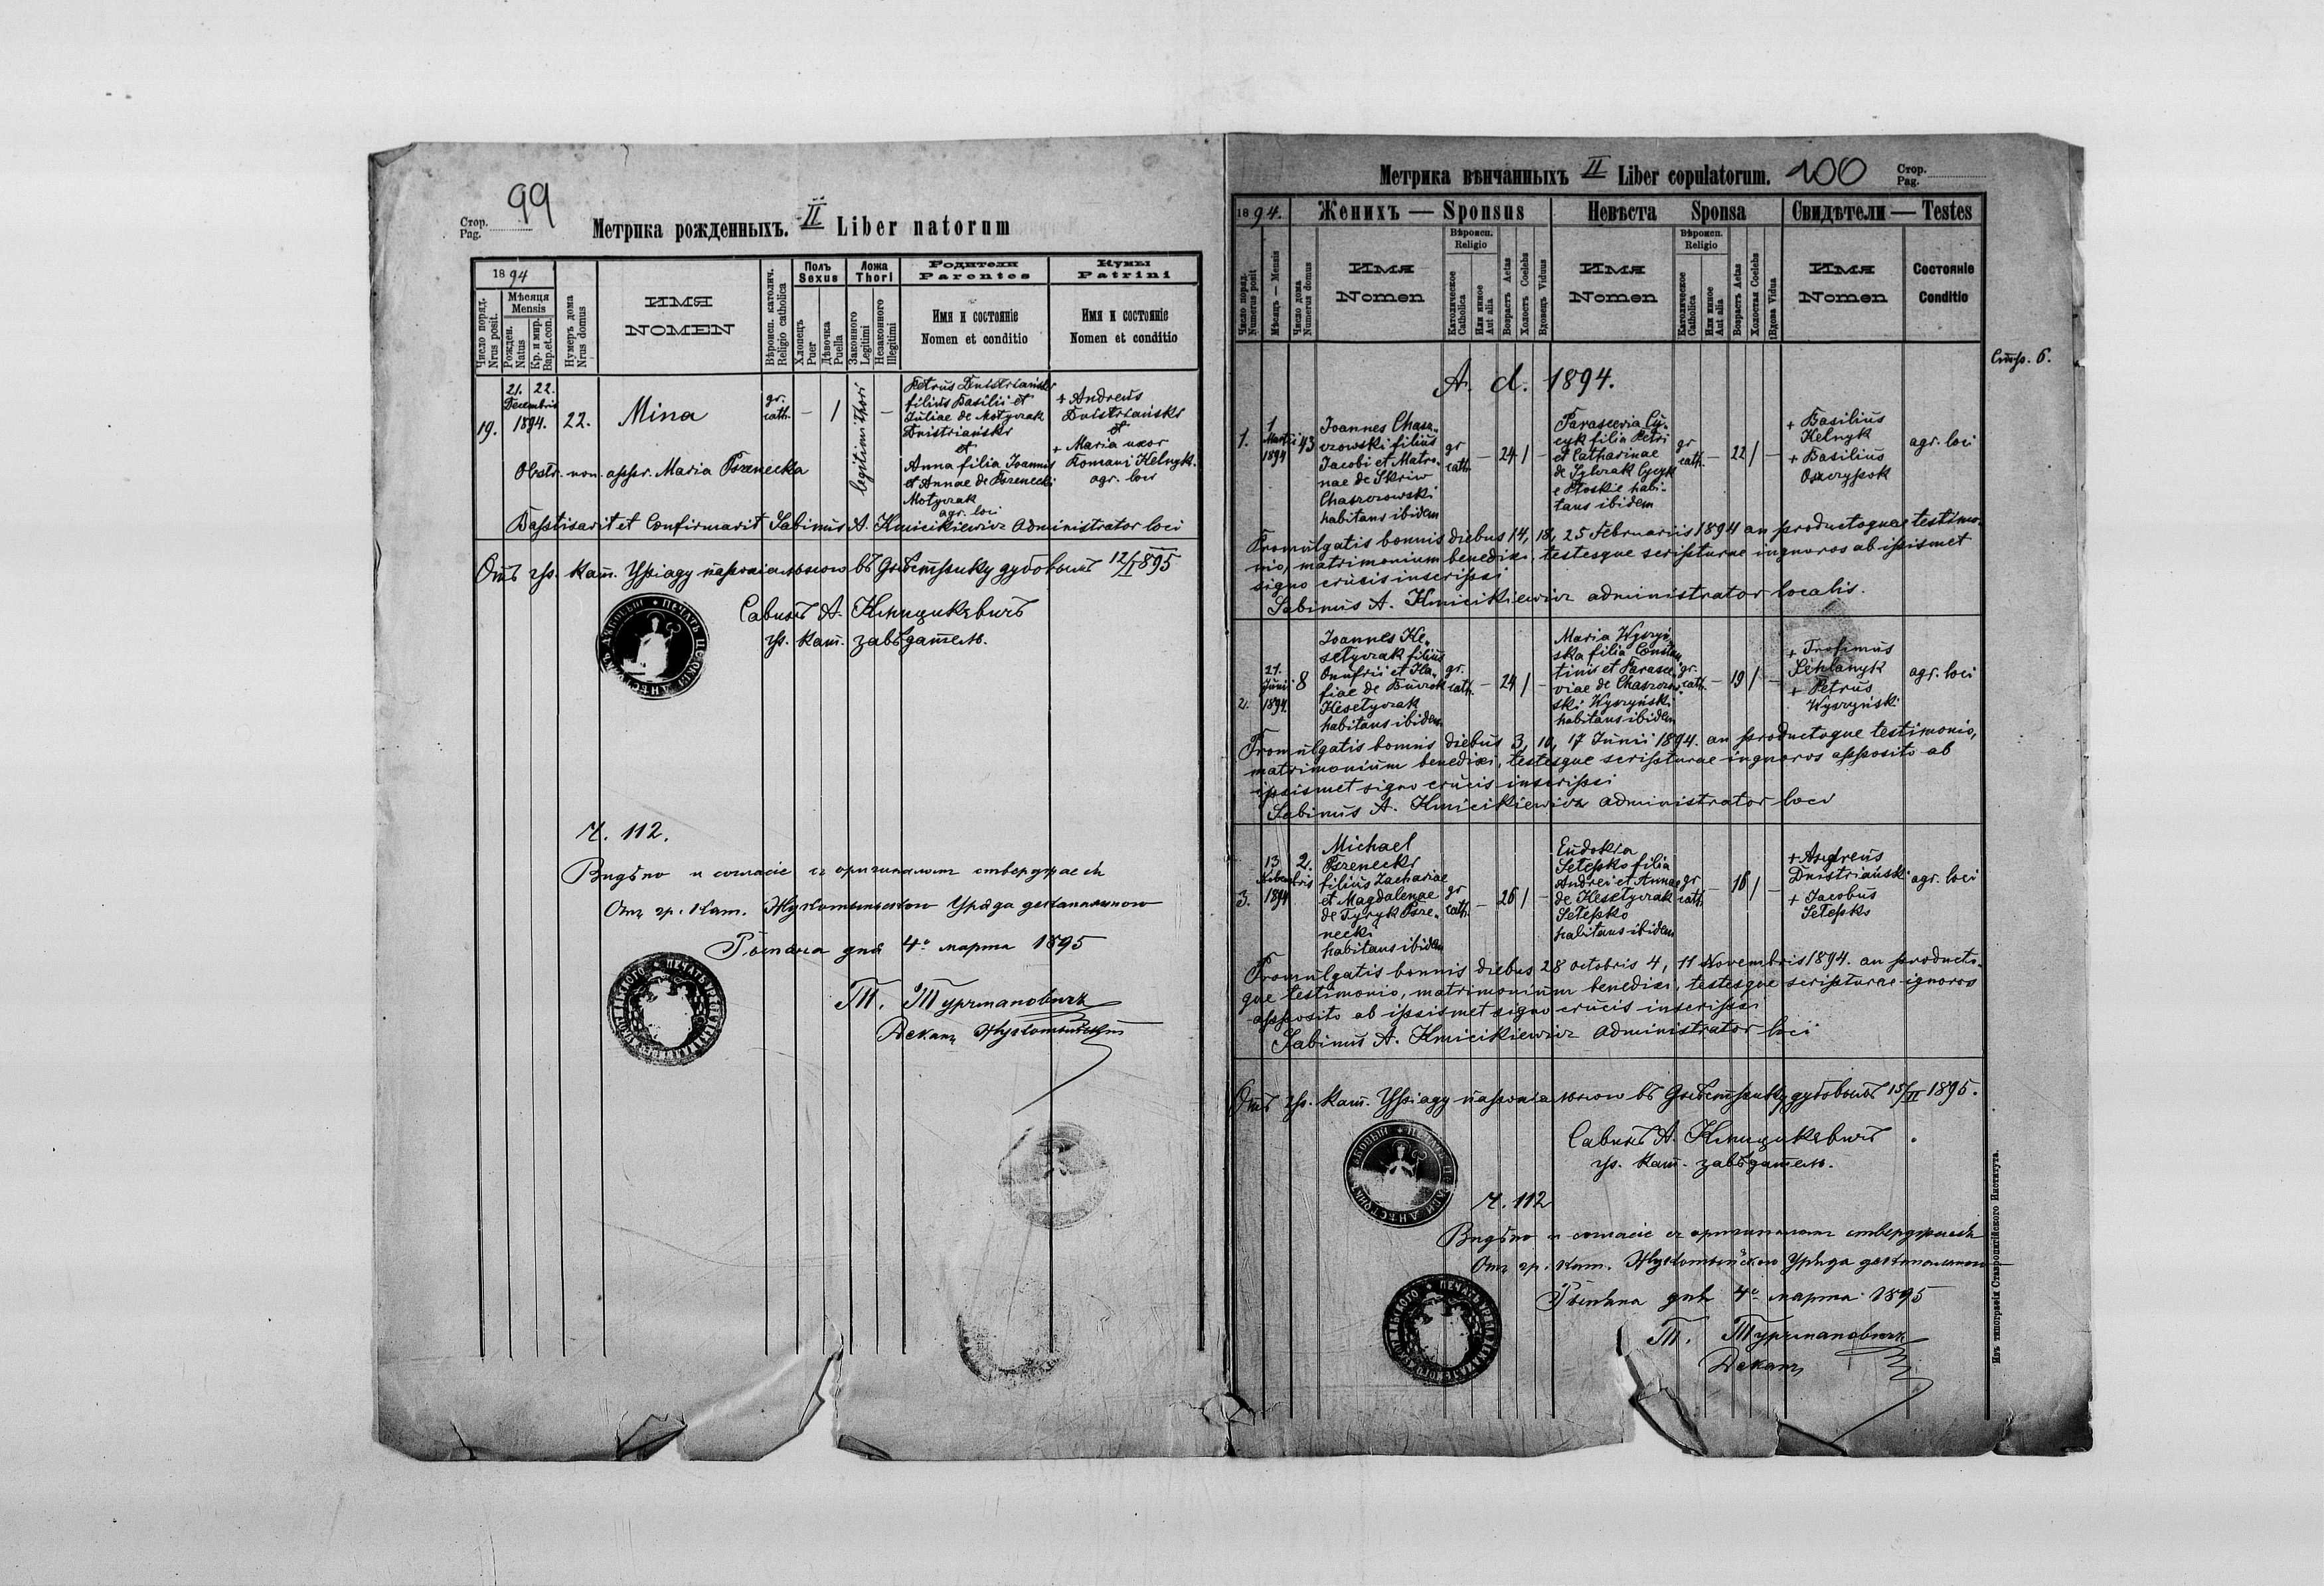 Стор. 99
Pag.
Метрика рожденныхъ. II Liber natorum
1894
Число поряд.
Nrus posit.
Мѣсяця
Mensis
Рожден.
Natus
Кр. и мир.
Bap. et con.
Нумеръ дома
Nrus domus
ИМЯ
NOMEN
Вѣроисп. католич.
Religio catholica
Полъ
Sexus
Хлопець
Puer
Дѣвочка
Puella
Ложа
Thori
Законного
Legitimi
Незаконного
Illegitimi
Родители
Parentes
Имя и состояніе
Nomen et conditio
Кумы
Patrini
Имя и состояніе
Nomen et conditio
19.
21. 22.
Decembris
1894.
22.
Mina
gr.
cath.
–
1
legitimi thori
–
Petrus Dnistriański
filius Basilii et
Juliae de Motyczak
Dnistriański
et
Anna filia Joannis
et Annae de Pszenecki
Motyczak
agr. loci
+ Andreus
Dnistriański
et
+ Maria uxor
Romani Kelnyk.
agr. loci
Obstr. non. appr. Maria Pszenecka
Baptisavit et Confirmavit Sabinus A. Kmicikiewicz Administrator loci
Отъ гр. кат. Уряду парохіального въ Днѣстрику дубовомъ 12/I 1895
Савинъ А. Кмицикевичъ
гр. кат. завѣдатель.
Ч. 112.
Видѣно и согласіе съ оригиналомъ створджаесь
Отъ гр. кат. Жукотинского Уряда деканального
дня 4го марта 1895
Т. Турчмановичъ
Деканъ Жукотинскій
Метрика вѣнчанныхъ II Liber copulatorum. 100 Стор.
Pag.
1894.
Женихъ — Sponsus
Невѣста Sponsa
Свидѣтели — Testes
Число поряд.
Numerus posit
Мѣсяць — Mensis
Число дома
Numerus domus
Имя
Nomen
Вѣроисп.
Religio
Католическое
Catholica
Или инное
Aut alia
Возрастъ Aetas
Холостъ Coelebs
Вдовецъ Viduus
Имя
Nomen
Вѣроисп.
Religio
Католическое
Catholica
Или инное
Aut alia
Возрастъ Aetas
Холостая Coelebs
Вдова Vidua
Имя
Nomen
Состояніе
Conditio
Стр. 6.
A. d. 1894.
1.
1
Martii
1894
43
Joannes Chasz-
czowski filius
Jacobi et Matro-
nae de Skriw
Chaszczowski
habitans ibidem
gr
cath.
–
24
1
–
Parascevia Cy-
cyk filia Petri
et Catharinae
de Szlczak Cycyk
e Płoskie habi-
tans ibidem
gr
cath.
–
22
1
–
+ Basilius
Kelnyk
+ Basilius
Oszczypok
agr. loci
Promulgatis bannis diebus 14, 18, 25 Februariis 1894 an productoque testimo-
nio, matrimonium benedixi, testesque scripturae ingnoros ab ipsismet
signo crucis inscripsi
Sabinus A. Kmicikiewicz administrator localis.
2.
21.
Juni
1894.
8
Joannes Ke-
setyczak filius
Onufrii et Ha-
fiae de Burczak
Kesetyczak
habitans ibidem
gr.
cath.
–
24
1
–
Maria Wyszyń-
ska filia Constan-
tinii et Parasce-
viae de Chaszczow-
ski Wyszyński
habitans ibidem
gr.
cath.
–
19
1
–
+ Trofimus
Sehlanyk
+ Petrus
Wyszyński
agr. loci
Promulgatis bannis diebus 3, 10, 17 Junii 1894. an productoque testimonio,
matrimonium benedixi, testesque scripturae ingnoros apposito ab
ipsismet signo crucis inscripsi
Sabinus A. Kmicikiewicz administrator loci
3.
13
Novembris
1894
2.
Michael
Pszenecki
filius Zachariae
et Magdalenae
de Tyzyk Psze-
necki
habitans ibidem
gr
cath.
–
26
1
–
Eudokia
Setepko filia
Andrei et Annae
de Kesetyczak
Setepko
habitans ibidem
gr
cath.
–
16
1
–
+ Andreus
Dnistriański
+ Jacobus
Setepko
agr. loci
Promulgatis bannis diebus 28 octobris 4, 11 Novembris 1894. an producto-
que testimonio, matrimonium benedixi, testesque scripturae ignoros
apposito ab ipsismet signo crucis inscripsi
Sabinus A. Kmicikiewicz Administrator loci
Отъ гр. кат. Уряду парохіального въ Днѣстрику дубовомъ 15/II 1895.
Савинъ А. Кмицикевичъ
гр. кат. завѣдатель.
Ч. 112
Видѣно и согласіе съ оригиналомъ створджаесь
Отъ гр. кат. Жукотинского Уряда деканального
дня 4го марта 1895
Т. Турчмановичъ
Деканъ
Изъ типографіи Ставропигійского Института.